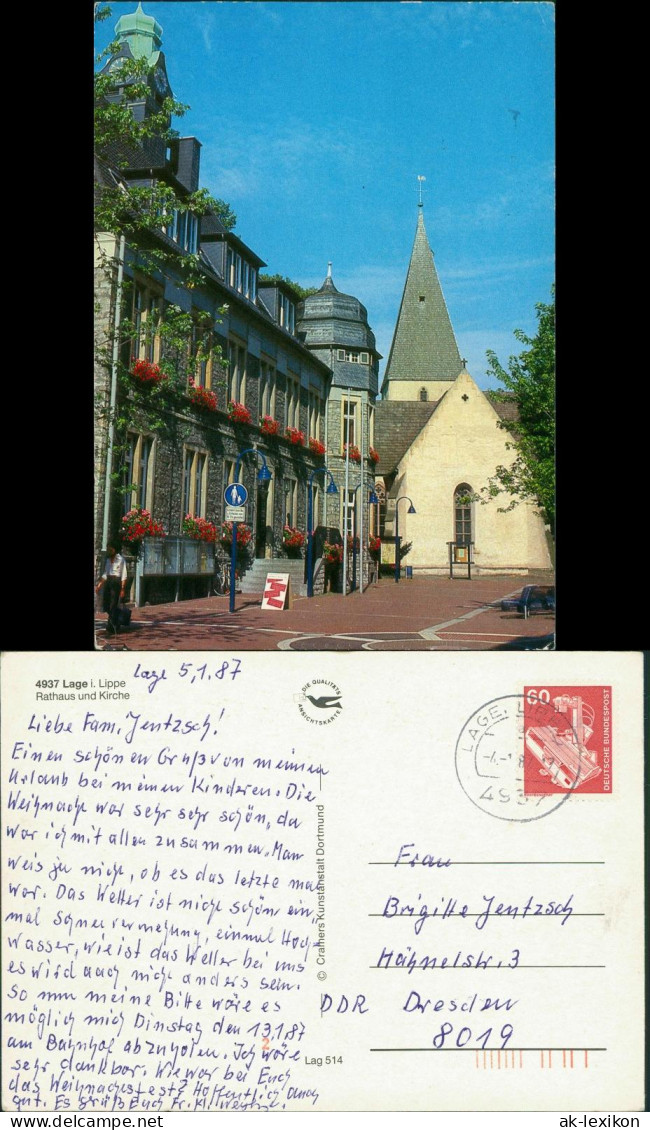 4937 Lage i. Lippe
Rathaus und Kirche
Lage 5,1.87
DIE QUALITÄTS
ANSICHTSKARTE
60
DEUTSCHE BUNDESPOST
LAGE, 
4937
Liebe Fam. Jentzsch!
Einen schönen Gruß von meinen
Urlaub bei meinen Kinderen. Die
Weihnacht war sehr sehr schön, da
war ich mit allen zusammen. Man
weis ja nicht, ob es das letzte mal
war. Das Wetter ist nicht schön ein,
mal Schneeverwehung, einmal Hoch,
wasser, wie ist das Wetter bei uns
es wird auch nicht anders sein.
So nun meine Bitte wäre es
möglich mich Dinstag den 13.1.87
am Bahnhof abzuholen. Ich wäre
sehr dankbar. Wie war bei Euch
das Weihnachtsfest? Hoffentlich auch
gut. Es grüß Euch Fr. Kl.
© Cramers Kunstanstalt Dortmund
Lag 514
Frau
Brigitte Jentzsch
Hähnelstr. 3
DDR Dresden
8019
delcampe.net
ak-lexikon